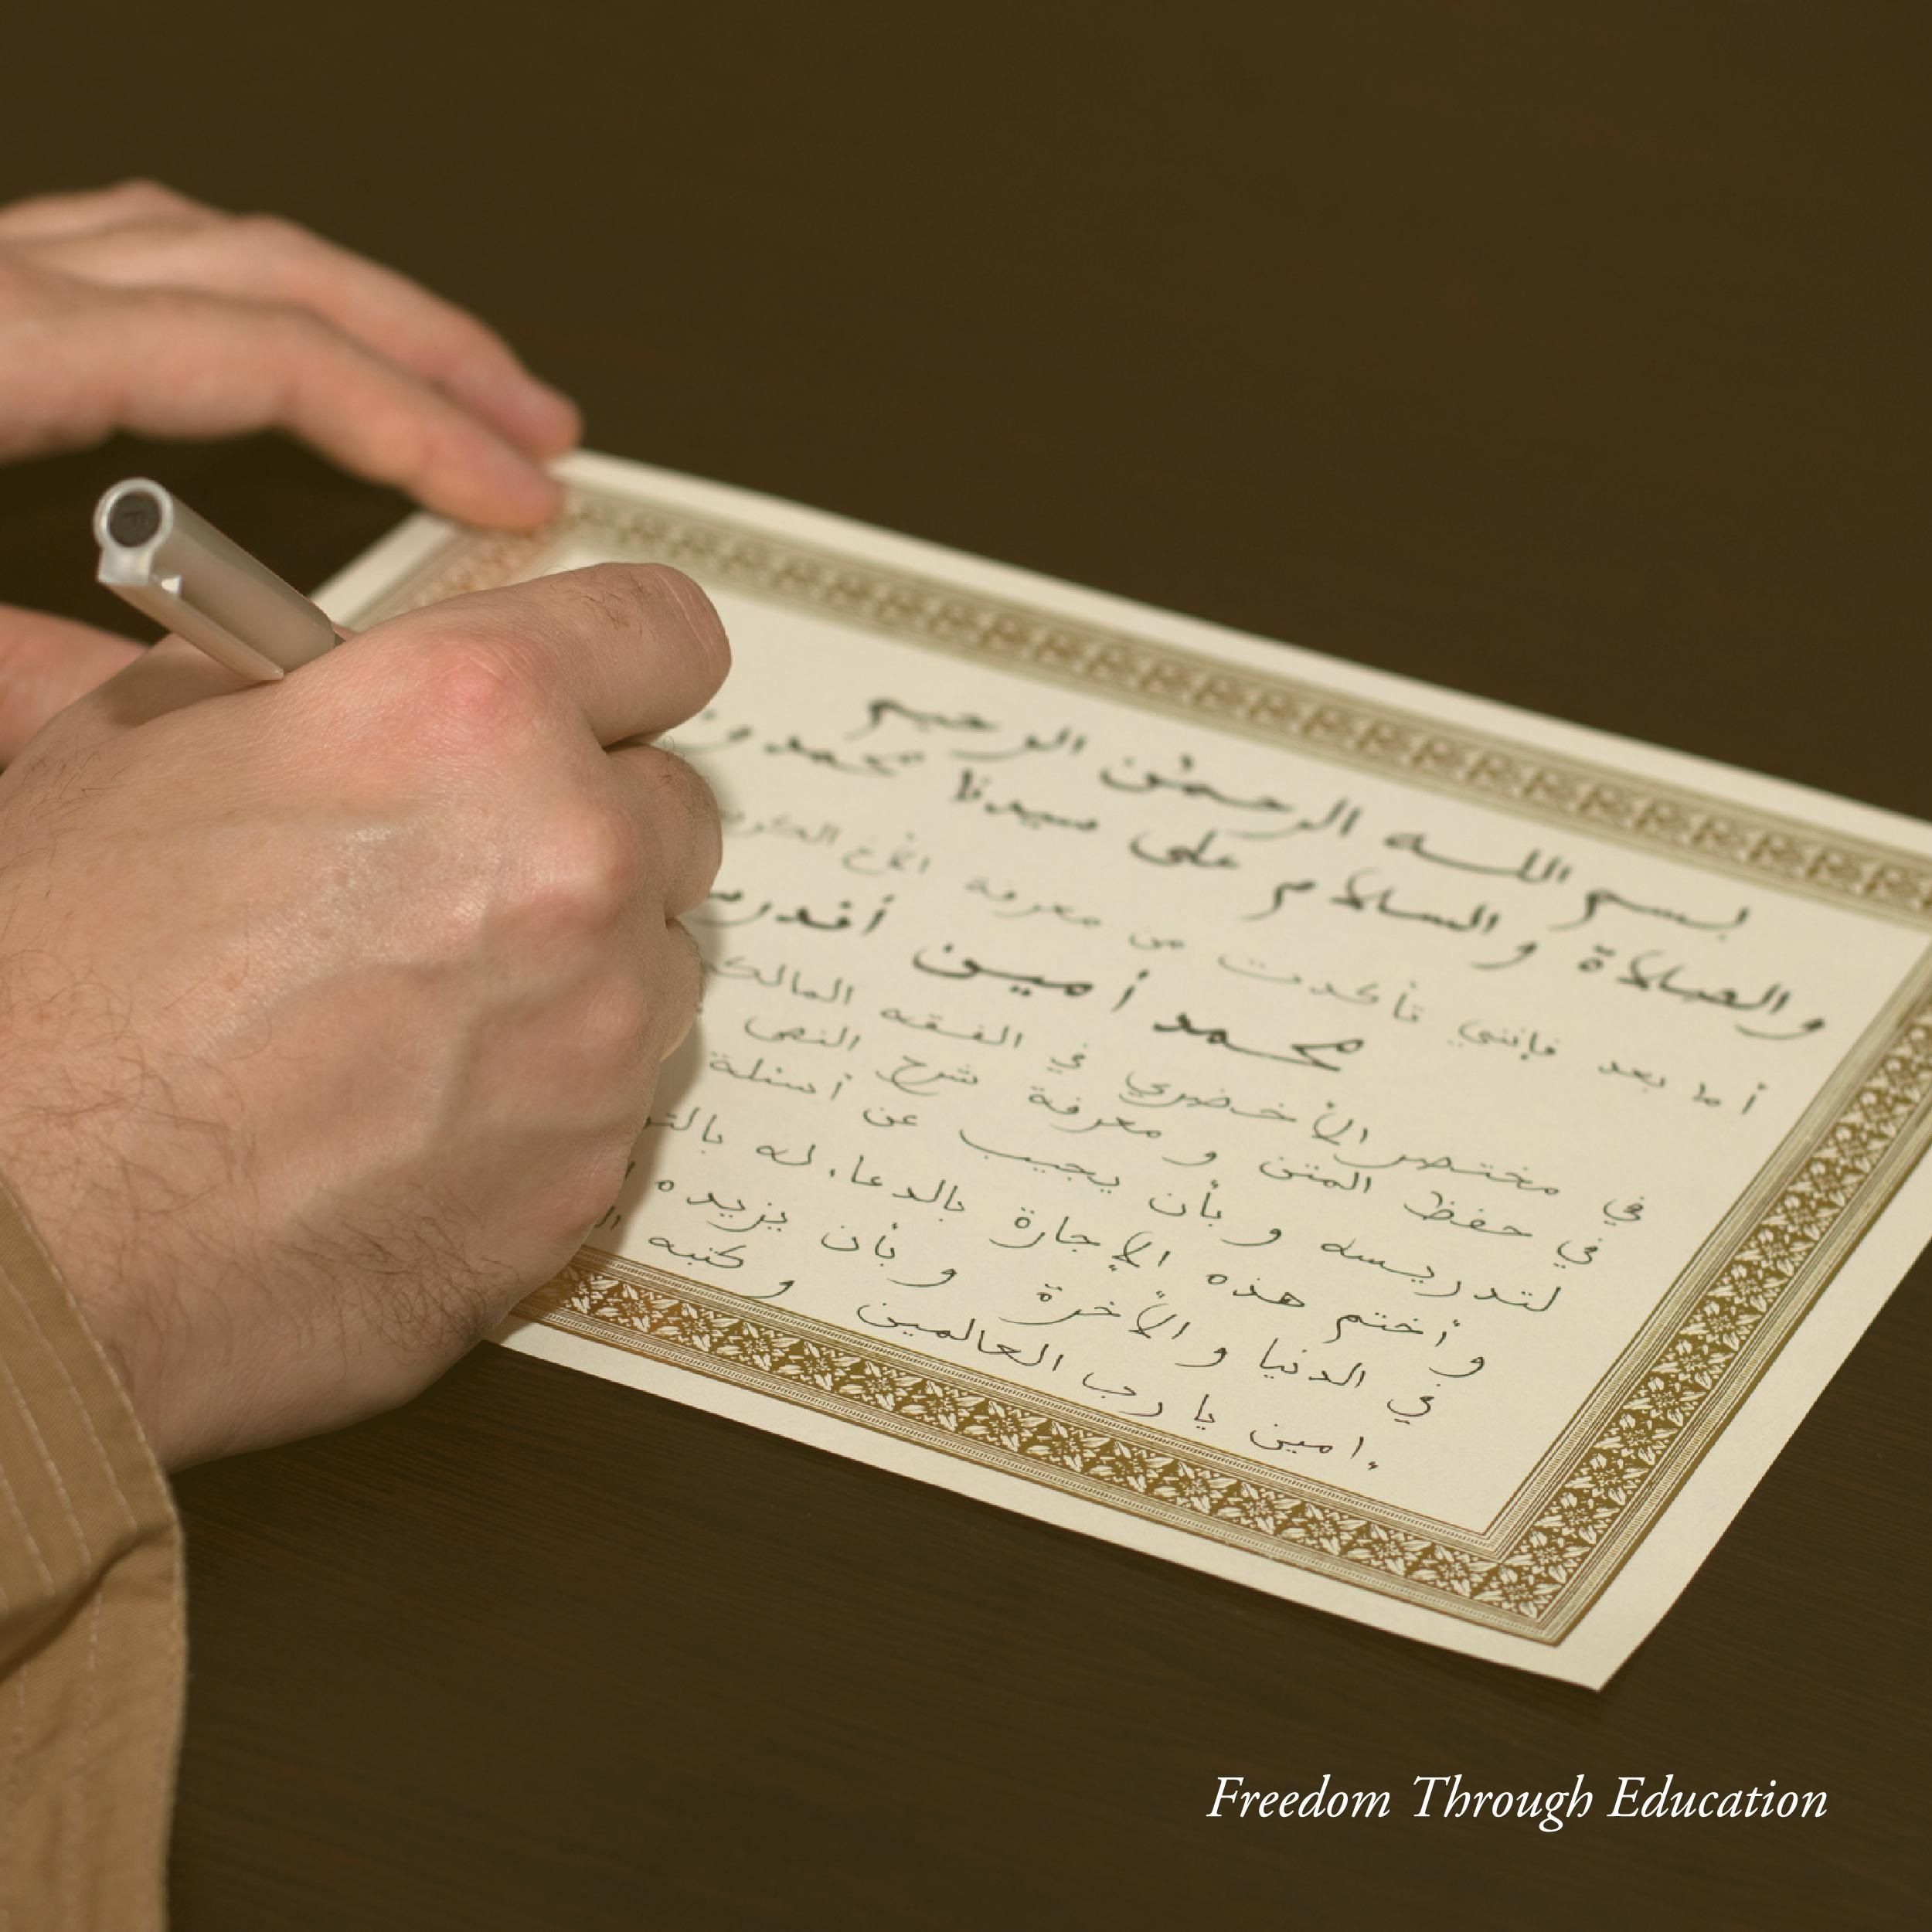 بسم اللـه الرحمٰن الرحيم
والصلاة والسلام على سيدنا محمد
أما بعد فإنني تأكدت من معرفة الأخ الكريم
محمد أمين
في مختصر الأخضري في الفقه المالكي
في حفظ المتن و معرفة شرح النص
لتدريسه و بأن يجيب عن أسئلة
وأختم هذه الإجازة بالدعاء له
في الدنيا و الأخرة و بأن يزيده
امين يا رب العالمين و كتبه
Freedom Through Education